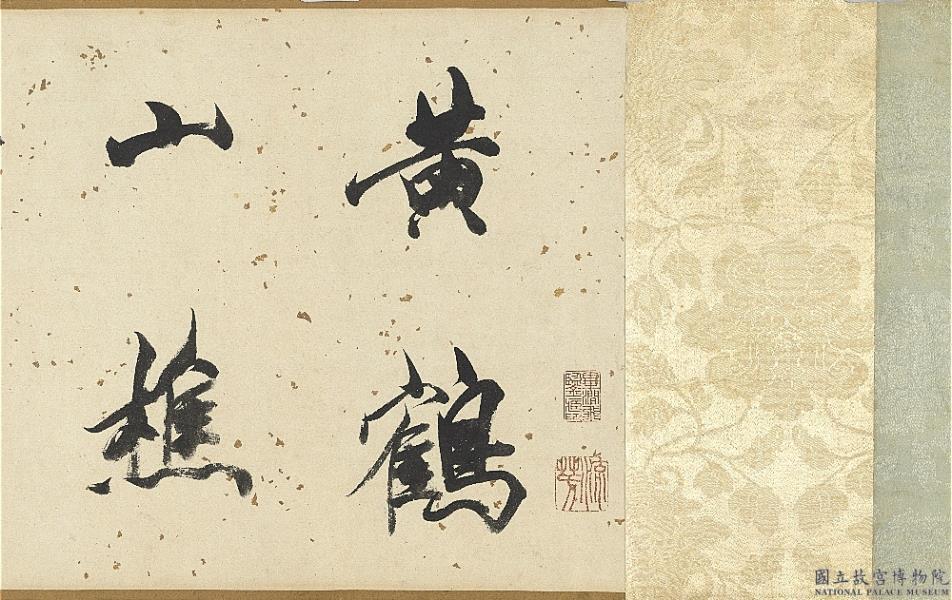 黃鶴
山樵
國立故宮博物院
NATIONAL PALACE MUSEUM